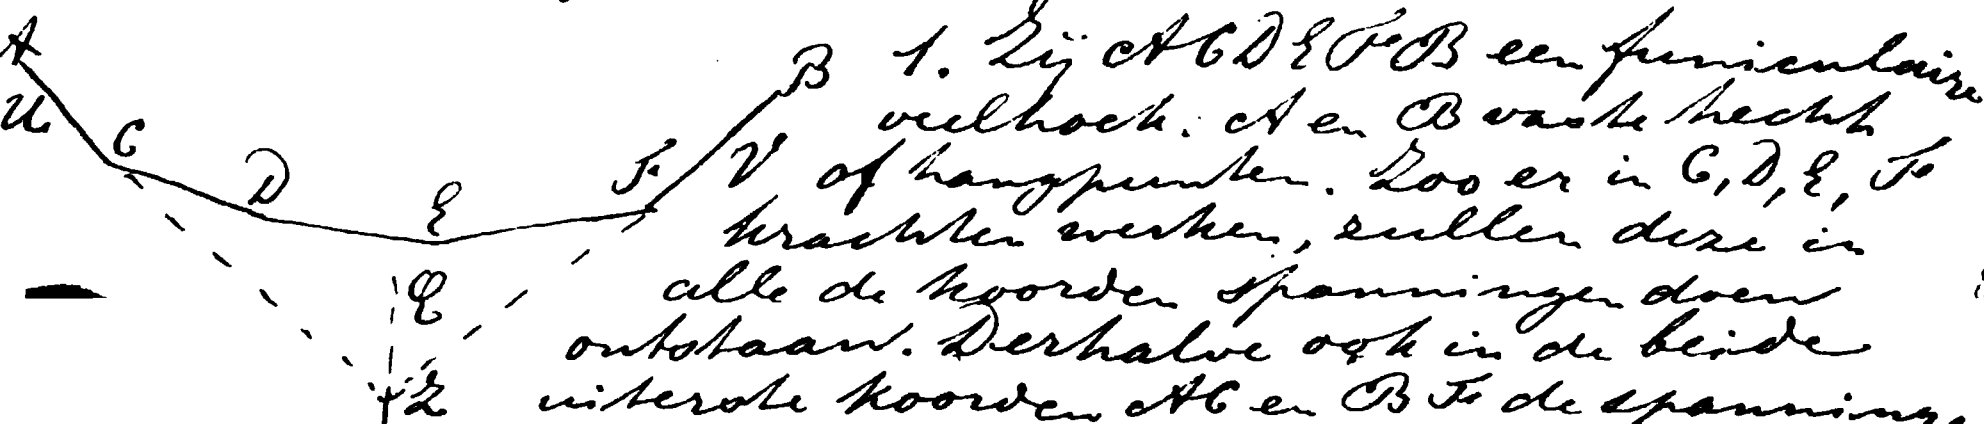 A
U
C
D
E
F
B
V
Q
Z
1. Zij ACDEFB een funiculaire
veelhoek. A en B vaste hecht
of hangpunten. Zoo er in C, D, E, F
krachten werken, zullen deze in
alle de koorden spanningen doen
ontstaan. Derhalve ook in de beide
uiterste koorden AC en BF de spanning